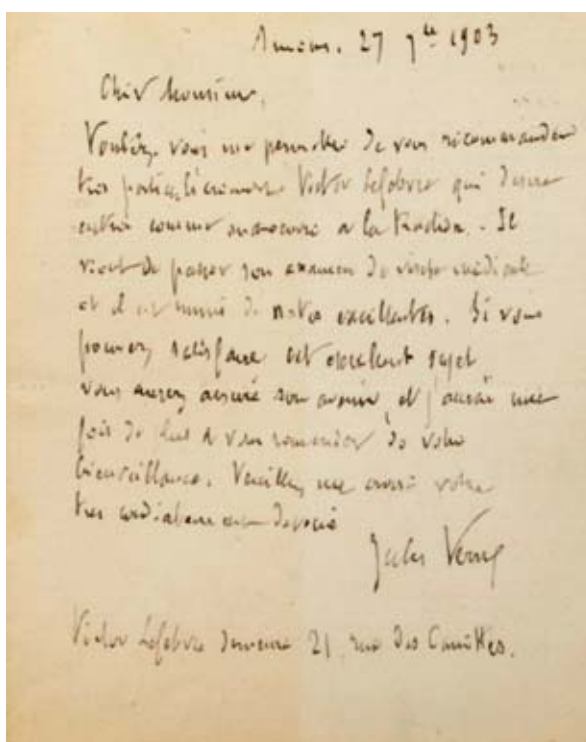 Amiens. 27 7bre 1903
Cher Monsieur,
Voulez-vous me permettre de vous recommander
très particulièrement Victor Lefebvre qui désire
entrer comme manœuvre à la Traction. Il
vient de passer son examen de visite médicale
et il est muni de notes excellentes. Si vous
pouvez satisfaire cet excellent sujet
vous aurez assuré son avenir, et j'aurai une
fois de plus à vous remercier de votre
bienveillance. Veuillez me croire votre
très cordialement dévoué
Jules Verne
Victor Lefebvre demeure 21, rue des